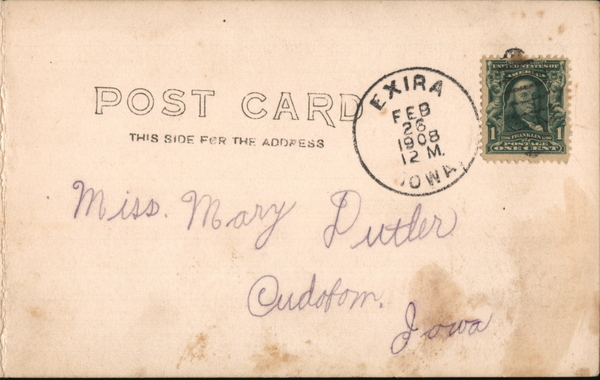 POST CARD
THIS SIDE FOR THE ADDRESS
EXIRA
FEB
26
1908
12 M.
IOWA
UNITED STATES OF
AMERICA
1 FRANKLIN 1
POSTAGE
ONE CENT
Miss. Mary Dutler
Iowa